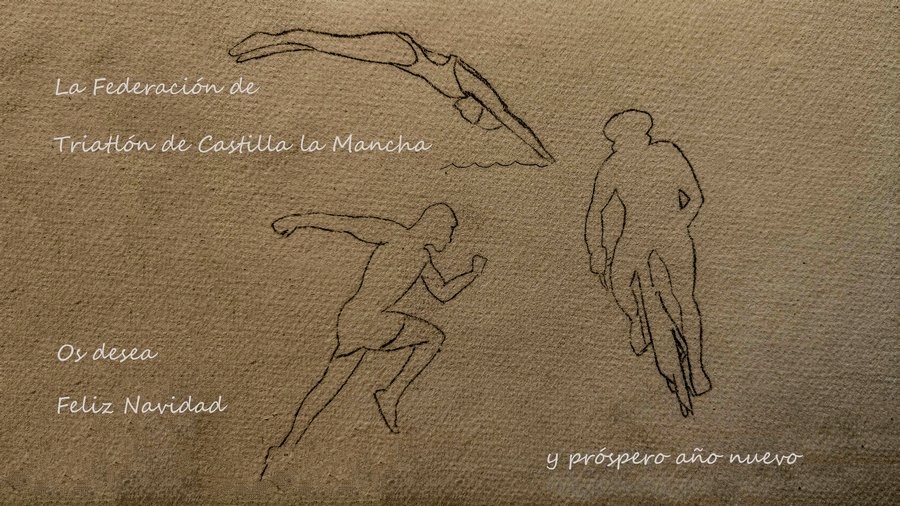 La Federación de
Triatlón de Castilla la Mancha
Os desea
Feliz Navidad
y próspero año nuevo